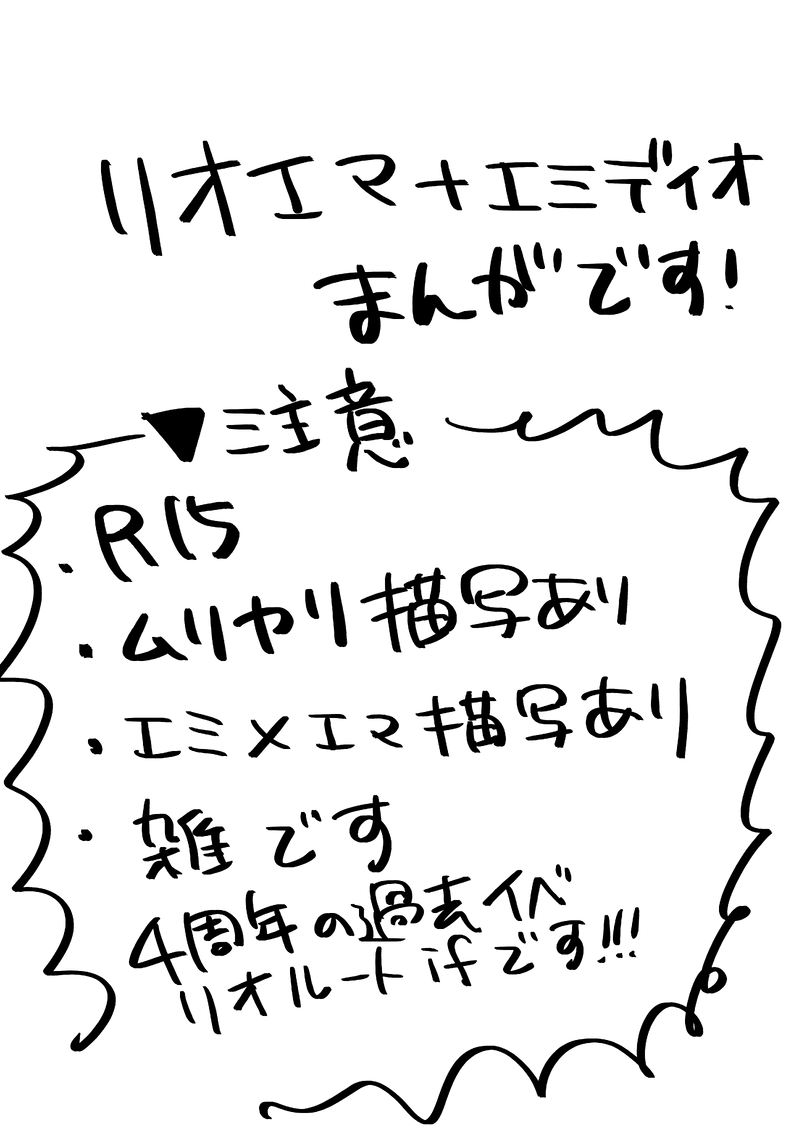 リオエマ+エミディオ
まんがです!
▼注意
・R15
・ムリヤリ描写あり
・エミ×エマ描写あり
・雑です
4周年の過去イベ
リオルートifです!!!